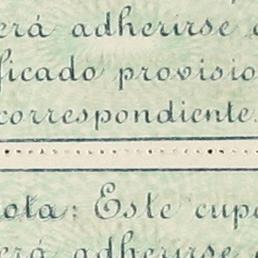 erá adherirse
ficado provisio
correspondiente.
ota: Este cup
erá adherirse